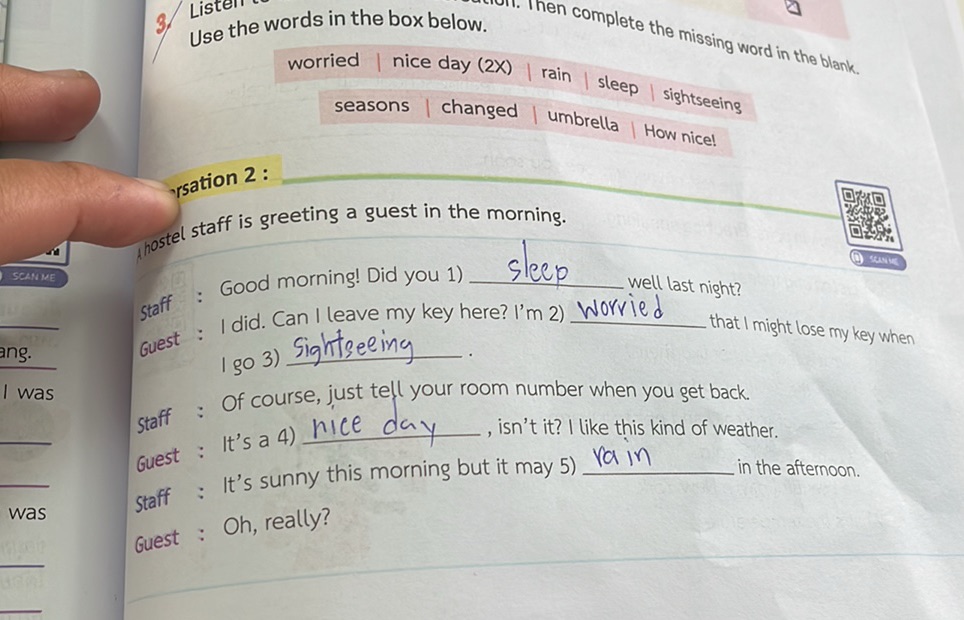 3. Listen
Then complete the missing word in the blank.
Use the words in the box below.
worried | nice day (2X) | rain | sleep | sightseeing
seasons | changed | umbrella | How nice!
rsation 2 :
A hostel staff is greeting a guest in the morning.
SCAN ME
SCAN ME
Staff : Good morning! Did you 1) sleep well last night?
Guest : I did. Can I leave my key here? I'm 2) worried that I might lose my key when
I go 3) Sightseeing .
Staff : Of course, just tell your room number when you get back.
Guest : It's a 4) nice day , isn't it? I like this kind of weather.
Staff : It's sunny this morning but it may 5) rain in the afternoon.
Guest : Oh, really?
ang.
I was
was